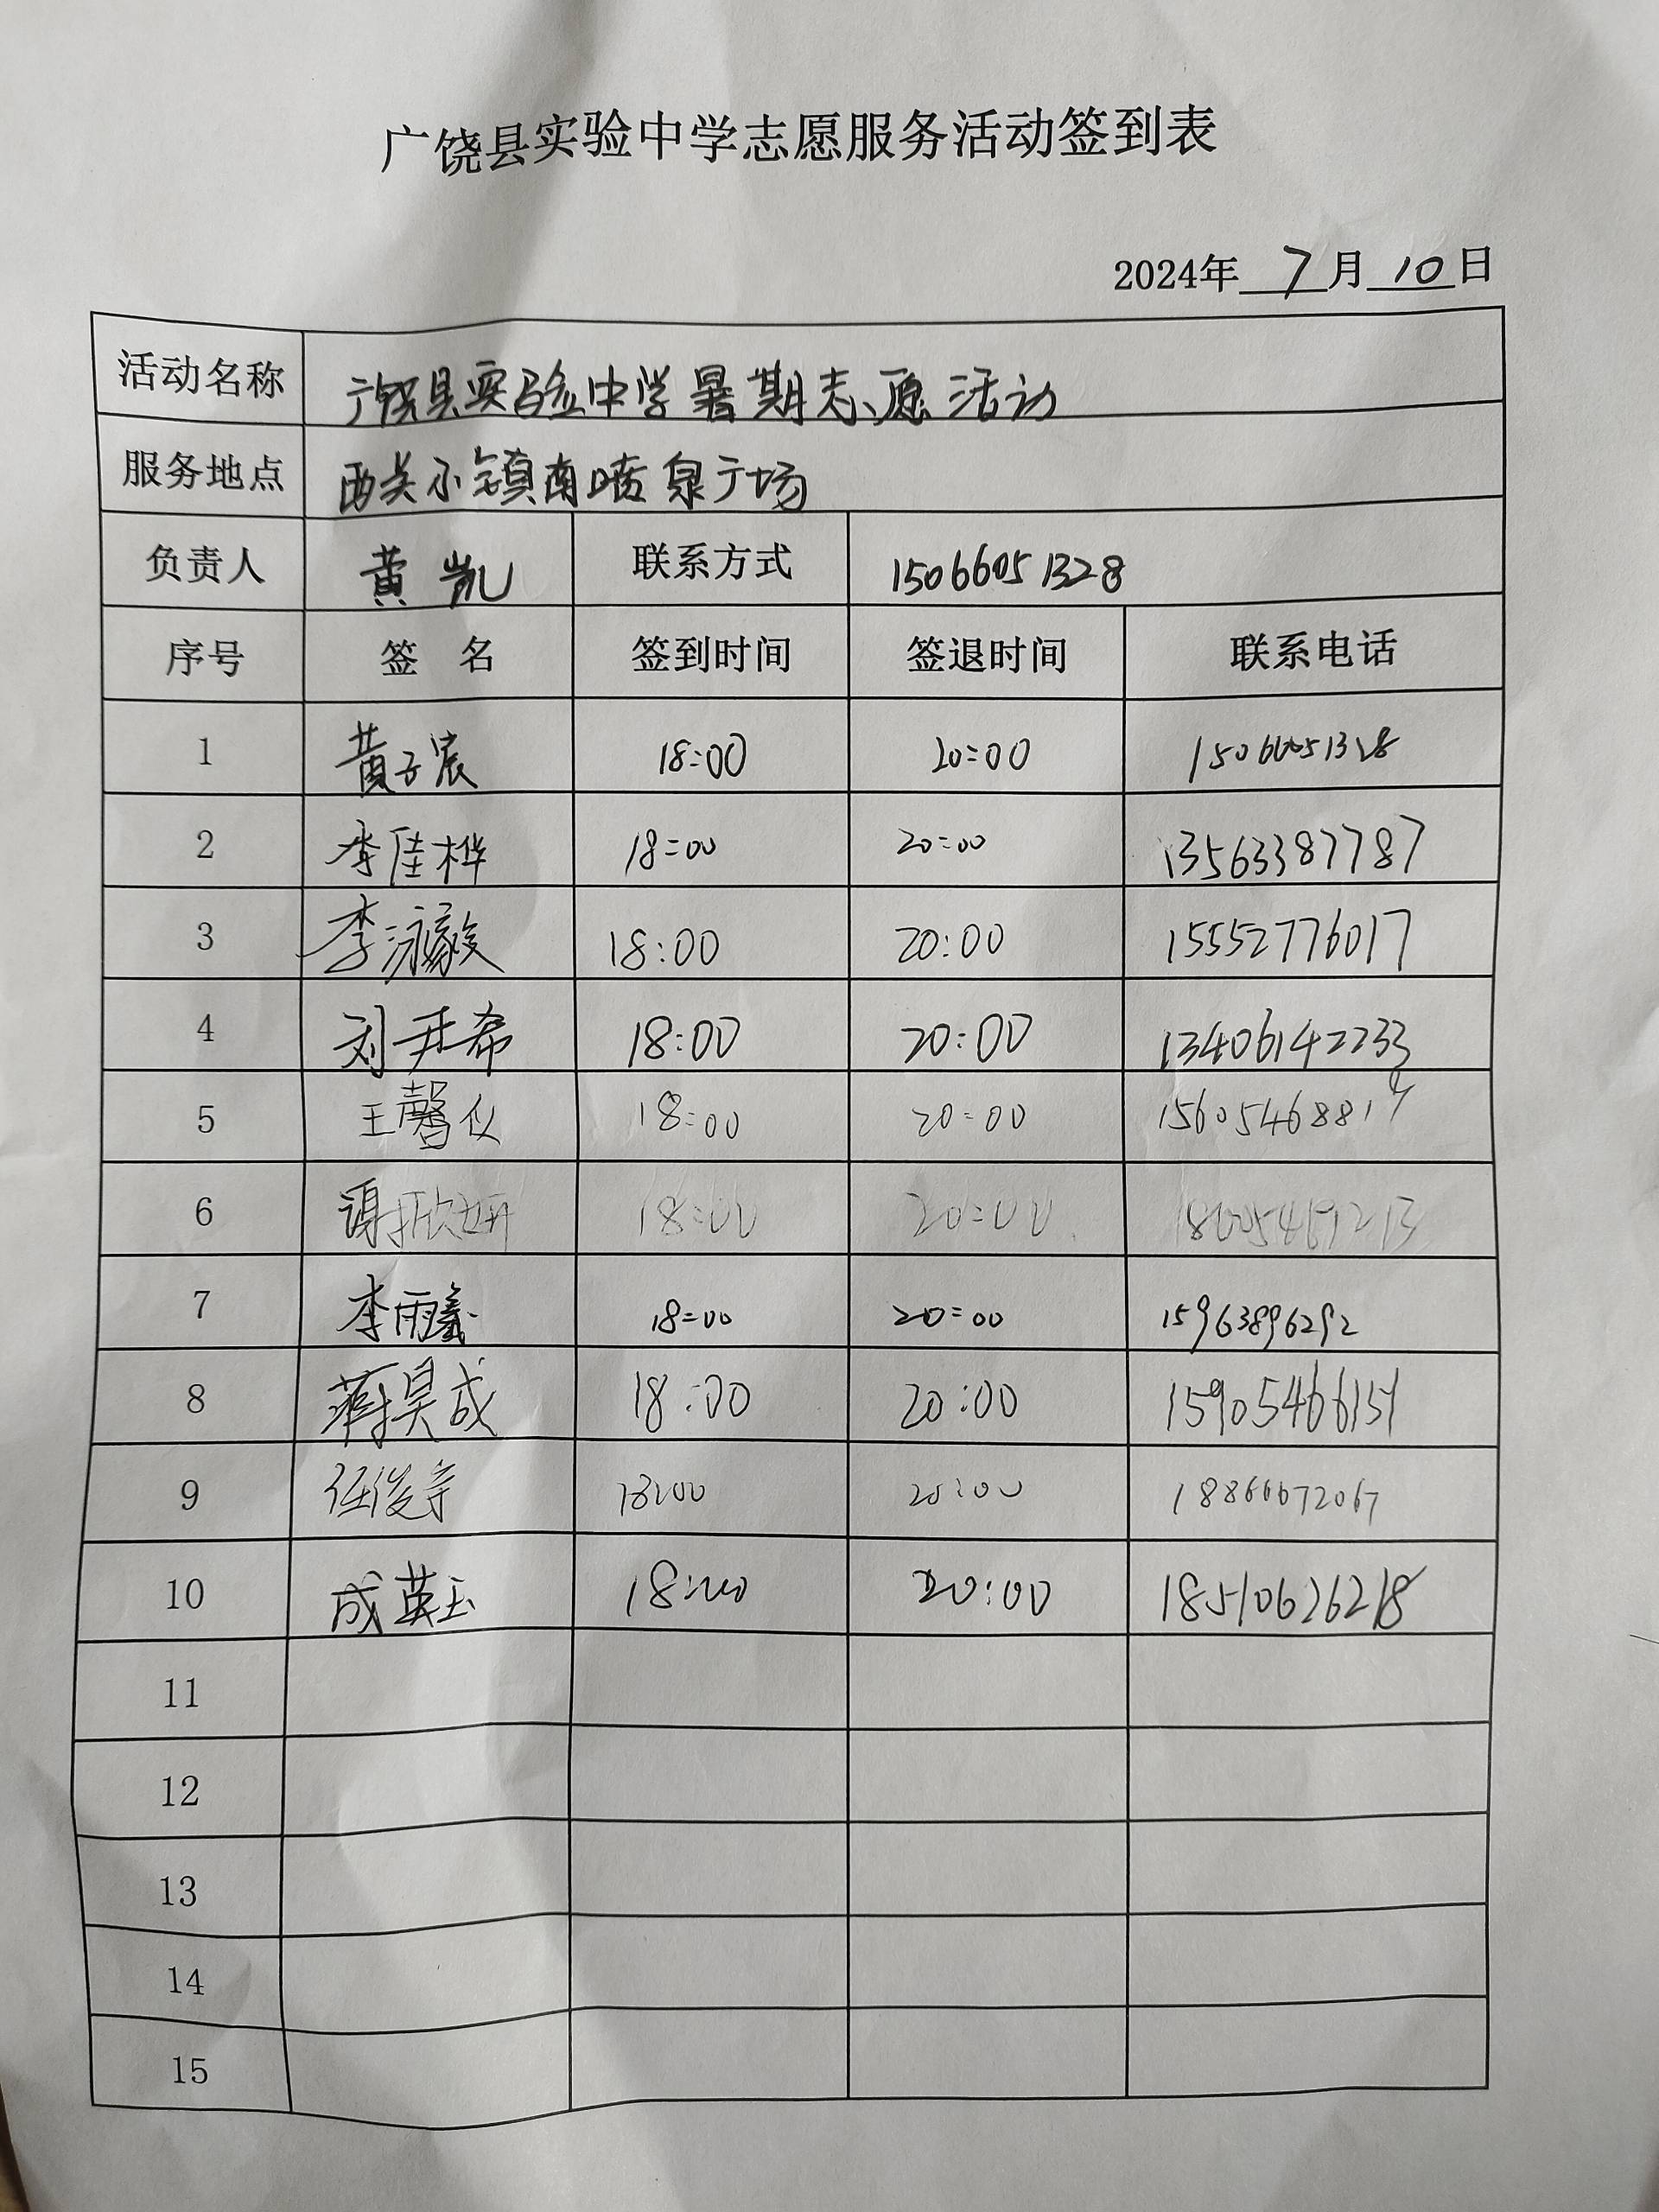 广饶县实验中学志愿服务活动签到表
2024年 7 月 10 日
活动名称 广饶县实验中学暑期志愿活动
服务地点 西关小镇南喷泉广场
负责人 黄凯 联系方式 15066051328
序号 签 名 签到时间 签退时间 联系电话
1 黄子宸 18:00 20:00 15066051328
2 李佳桦 18:00 20:00 13563387787
3 李泳毅 18:00 20:00 15552776017
4 刘尹希 18:00 20:00 13406142233
5 王馨仪 18:00 20:00 15605468819
6 谢欣妍 18:00 20:00
7 李雨曦 18:00 20:00 15963896292
8 蒋昊成 18:00 20:00 15905466151
9 任俊宇 18:00 20:00 18866672067
10 成英玉 18:00 20:00 18510626218
11
12
13
14
15